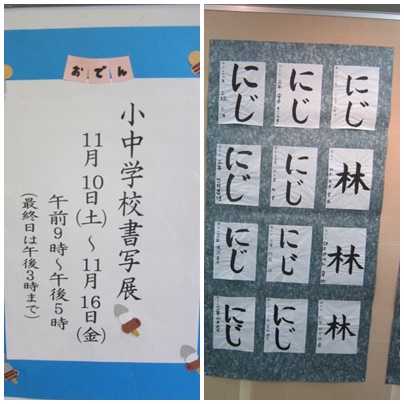 おでん
小中学校書写展
11月10日(土)～11月16日(金)
午前9時～午後5時
(最終日は午後3時まで)
にじ
にじ
にじ
林
にじ
にじ
林
にじ
にじ
林
にじ
にじ